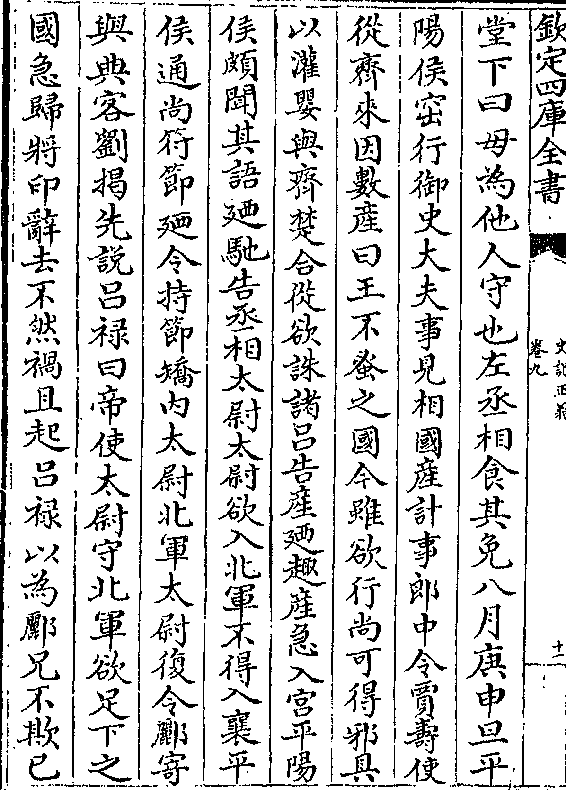 欽定四庫全書
史記正義
卷九
十二
堂下曰毋為他人守也左丞相食其免八月庚申旦平
陽侯窋行御史大夫事見相國產計事郎中令賈壽使
從齊來因數產曰王不蚤之國今雖欲行尚可得邪具
以灌嬰與齊楚合從欲誅諸呂告產廼趣產急入宮平陽
侯頗聞其語廼馳告丞相太尉太尉欲入北軍不得入襄平
侯通尚符節廼令持節矯內太尉北軍太尉復令酈寄
與典客劉揭先說呂禄曰帝使太尉守北軍欲足下之
國急歸將印辭去不然禍且起呂禄以為酈兄不欺已